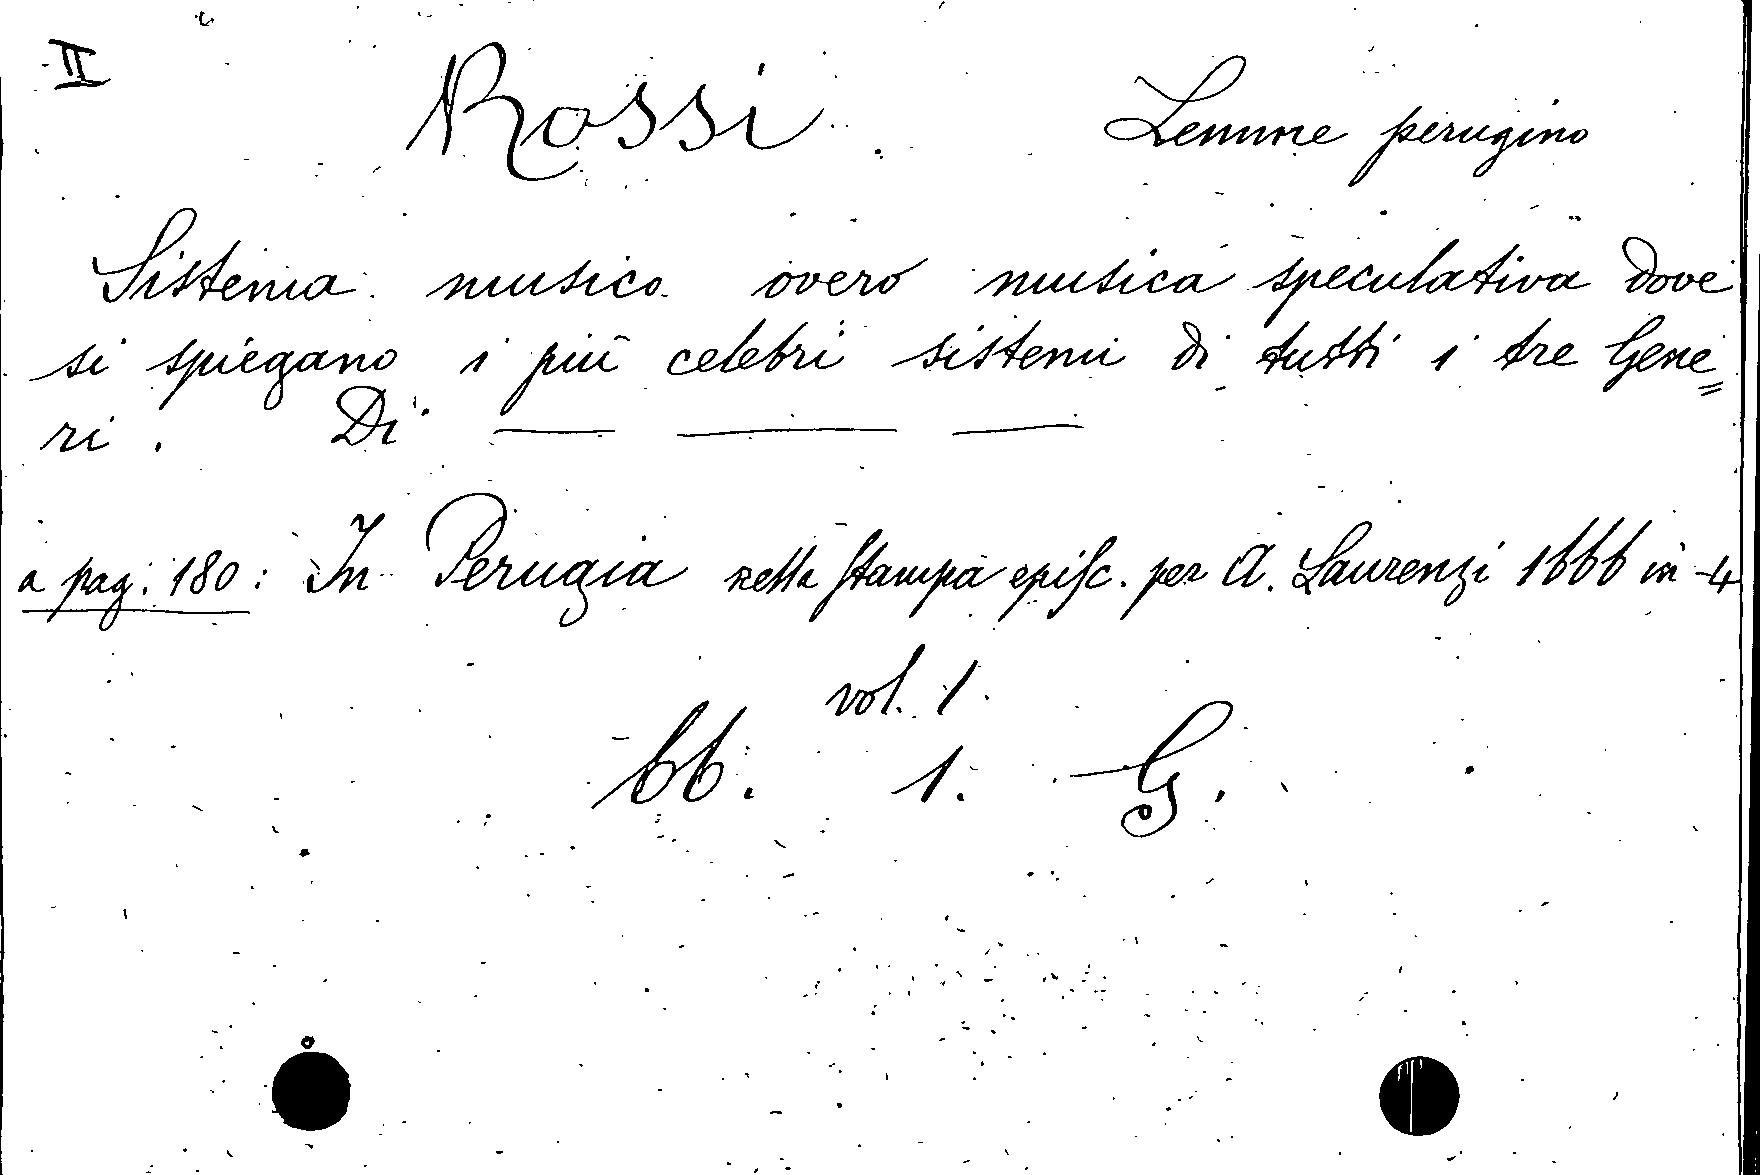 II
Rossi Lemme perugino
Sistema musico overo musica speculativa dove
si spiegano i più celebri sistemi di tutti i tre Gene=
ri. Di — — —
a pag. 180: In Perugia nella stampa episc. per A. Laurenzi 1666 in-4
vol. 1.
66. 1. G.